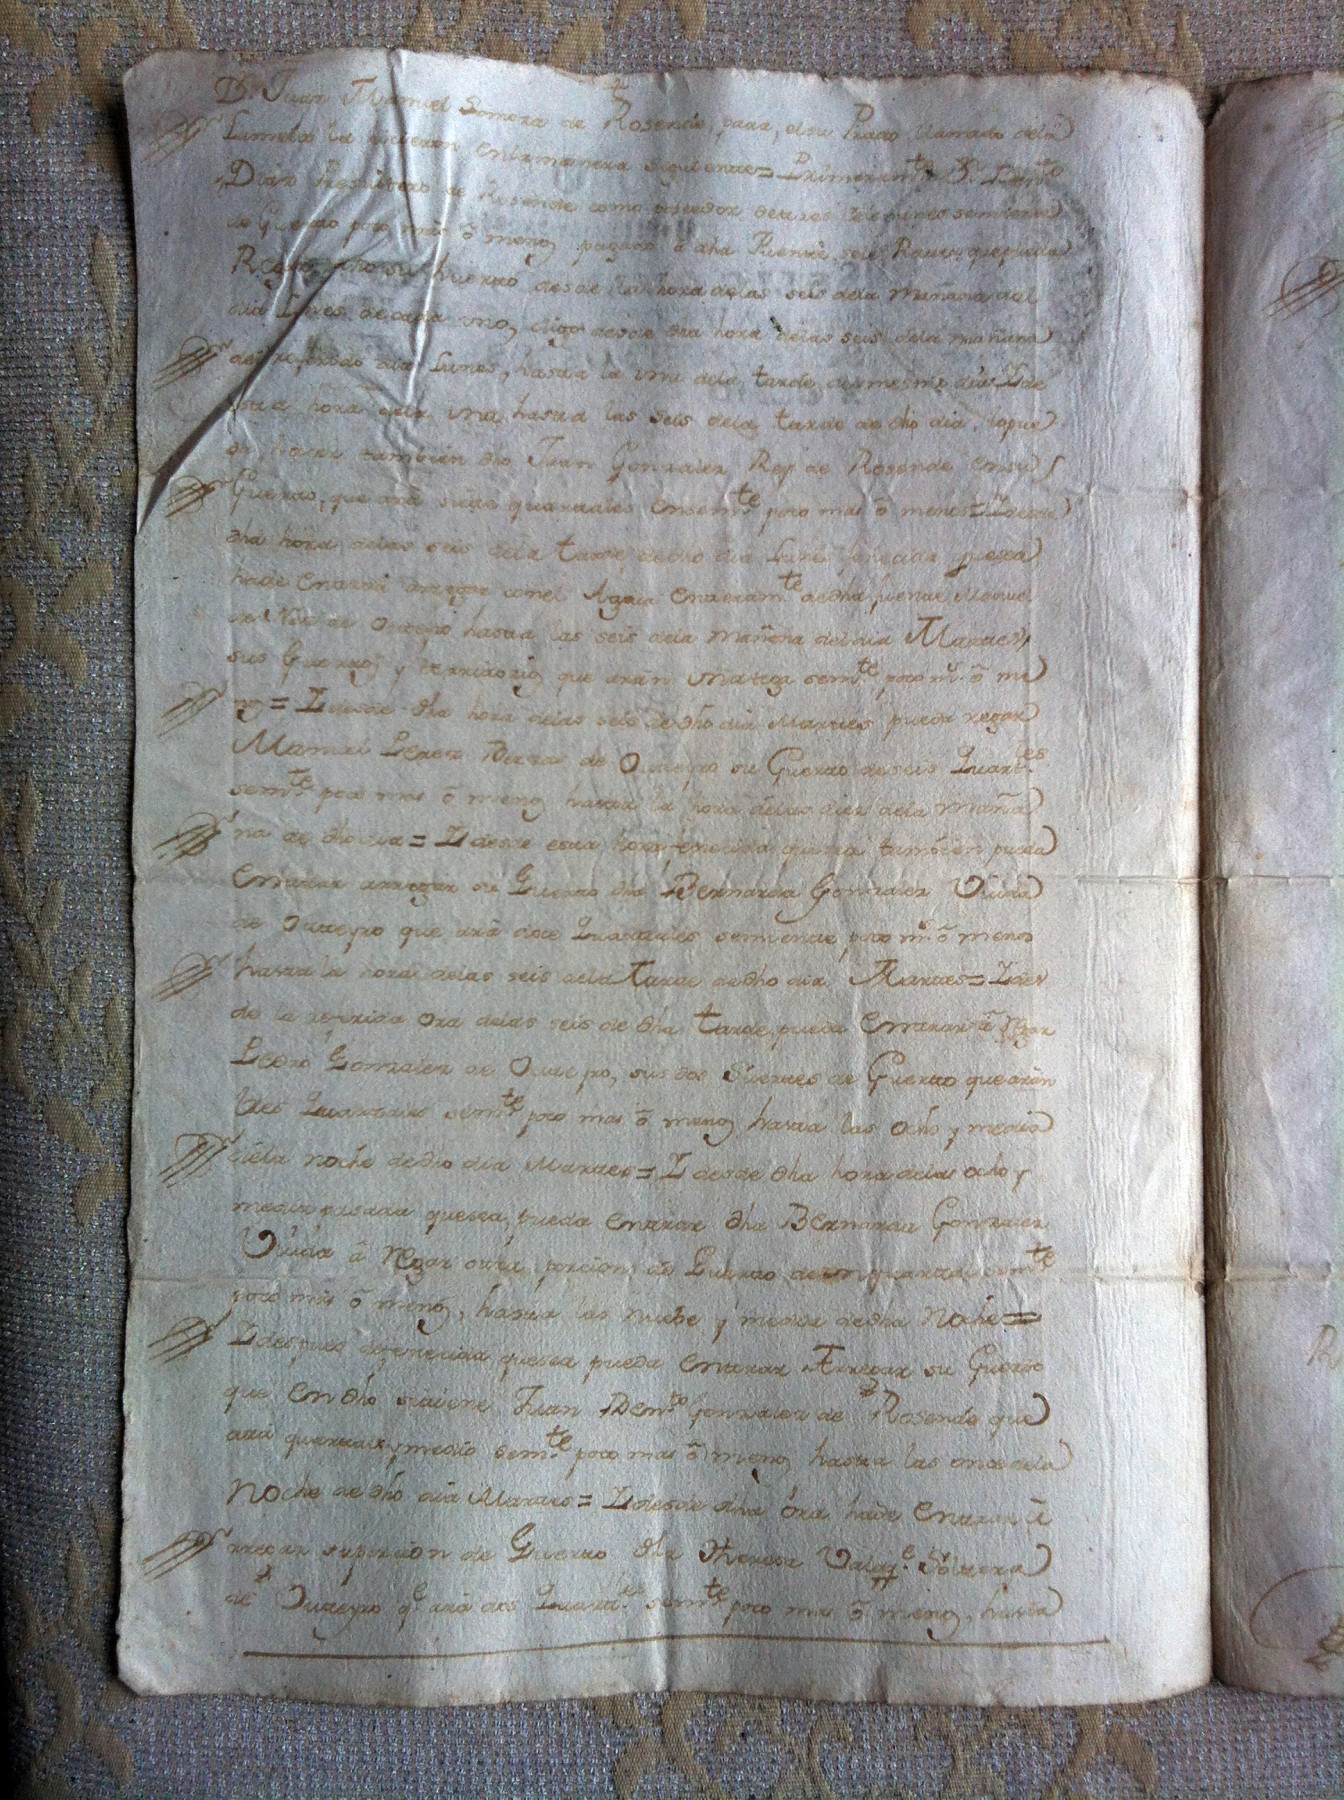 Dn. Juan Manuel Somoza de Rosende, para, el su Prado llamado dela
Lamela la hicieron, enlamanera siguiente = Primeramte Dn.
Diaz Presvitero de Rosende como poseedor detres
de Guerto poco mas ô menos pagado â dha Fuente, sele
Regar dho su Guerto desde la hora delas seis dela mañana del
dia Lunes de cada uno, digo desde dha hora delas seis dela mañana
del referido dia Lunes, hasta la una dela tarde del mesmo dia = Y de
esta hora dela una hasta las seis dela tarde de dho dia, lopue
da hacer tambien dho Juan Gonzalez Rey de Rosende ensu
Guerto, que ará siete quartales ensemte poco mas ô menos = Y desta
dha hora delas seis dela tarde dedho dia Lunes fenecida quesea
hade entrar arregar conel Agua enteramte dedha fuente Manuel
de Outeyro hasta las seis dela mañana deldia Martes,
sus Guertos, y territorios que arán semte poco ms. ô me
nos = Y desde dha hora delas seis de dho dia Martes pueda regar
Manuel Lopez de Outeyro su Guerto deseis Quartles
semte poco mas ô menos hasta la hora delas diez dela maña
na de dho dia = Y desde esta hora fenecida quesea tambien pueda
entrar arregar su Guerto dha Bernarda Gonzalez Viuda
de Outeyro que ará doce Quartales semiente poco ms. ô menos
hasta la hora delas seis dela Tarde dedho dia Martes = Y des
de la referida ora delas seis de dha tarde pueda entrar â Regar
Pedro Gonzalez de Outeyro, sus dos Suertes de Guerto que arán
tres Quartales semte poco mas ô menos hasta las ocho y media
dela noche dedho dia Martes = Y desde dha hora delas ocho y
media pasada quesea, pueda entrar dha Bernarda Gonzalez
Viuda â Regar otra porcion de Guerto deunquartal semte
poco mas ô menos, hasta las nuebe y media dedha Noche =
Y despues defenecida quesea pueda entrar Arregar su Guerto
que en dho sitio tiene Juan Gonzalez de Rosende que
ará quartal y medio semte poco mas ô menos hasta las once dela
Noche de dho dia Martes = Y desde dha óra hade entrar â
rregar suporcion de Guerto dha Theresa Soltera
de Outeyro qe. ará dos Quartles semte poco mas ô menos, hasta